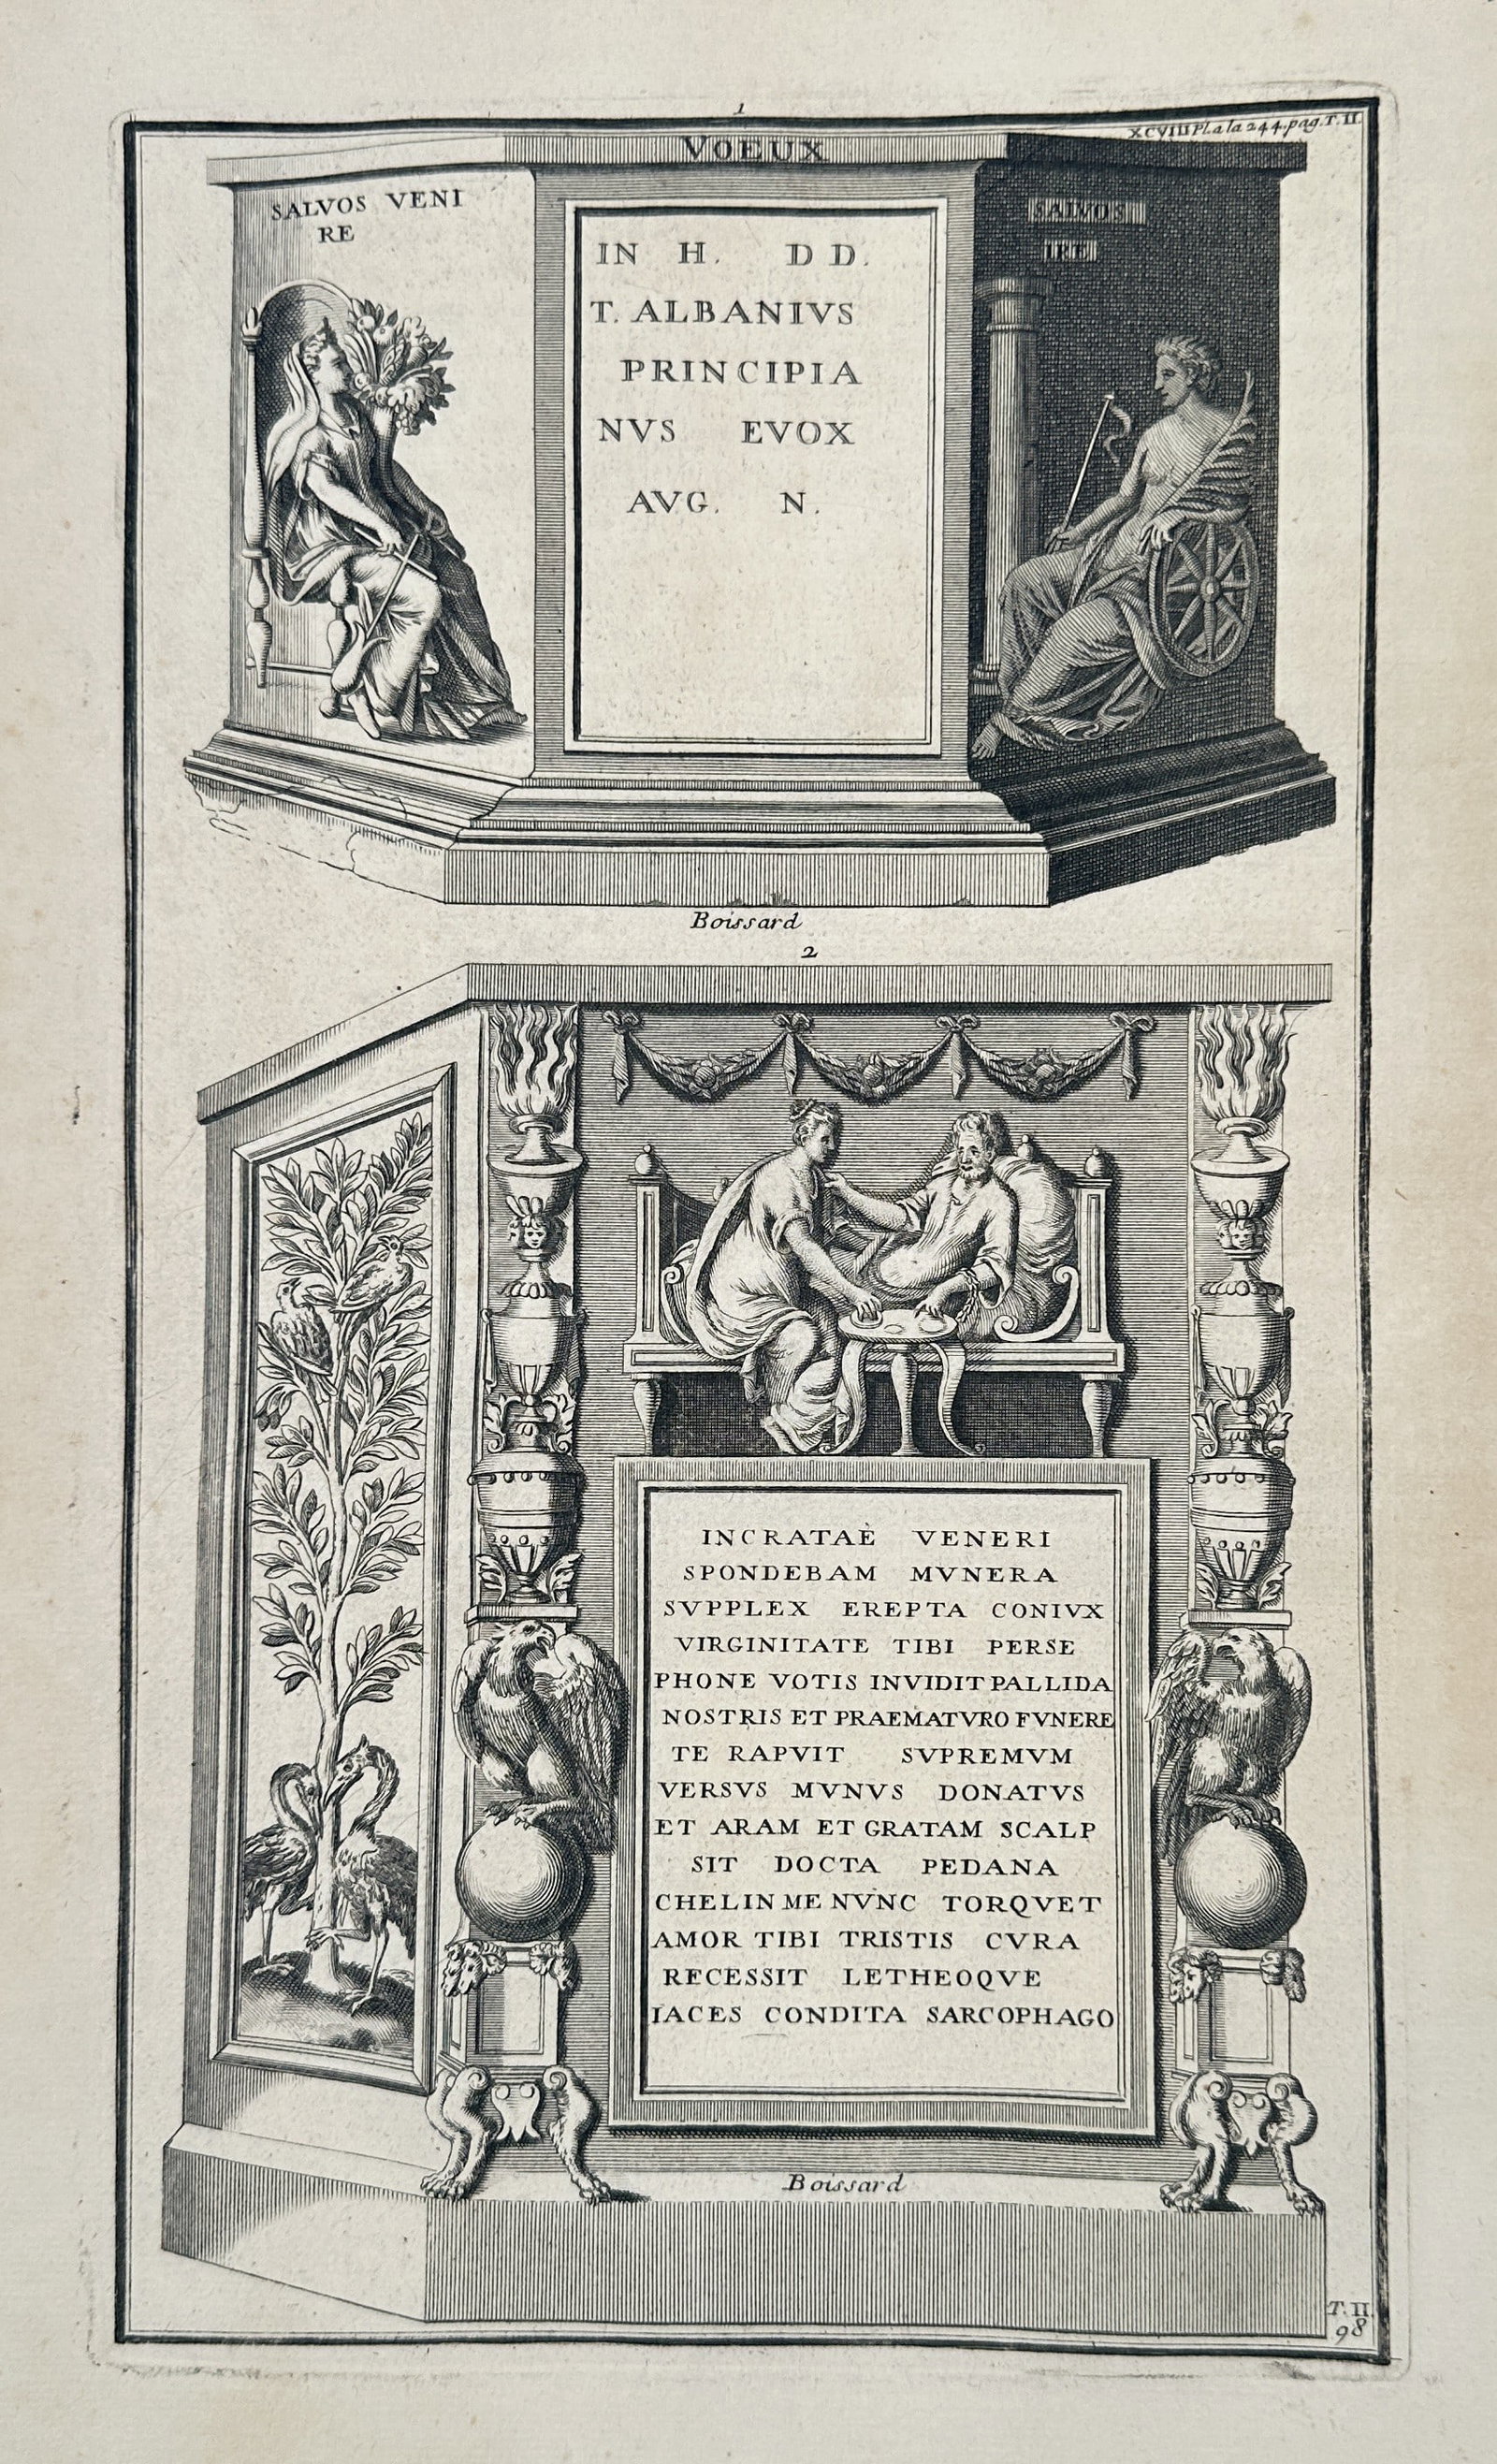 1
XCVIII Pl. a la 244. pag. T. II.
VOEUX
SALVOS VENI
RE
IN H. D D.
T. ALBANIVS
PRINCIPIA
NVS EVOX
AVG. N.
SALVOS
IRE
Boissard
2
INCRATAE VENERI
SPONDEBAM MVNERA
SVPPLEX EREPTA CONIVX
VIRGINITATE TIBI PERSE
PHONE VOTIS INVIDIT PALLIDA
NOSTRIS ET PRAEMATVRO FVNERE
TE RAPVIT SVPREMVM
VERSVS MVNVS DONATVS
ET ARAM ET GRATAM SCALP
SIT DOCTA PEDANA
CHELIN ME NVNC TORQVET
AMOR TIBI TRISTIS CVRA
RECESSIT LETHEOQVE
IACES CONDITA SARCOPHAGO
Boissard
T. II.
98